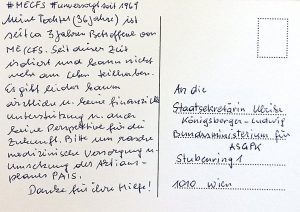 #MECFS #unversorgt seit 1969
Meine Tochter (36 Jahre) ist
seit ca 3 Jahren Betroffene von
ME/CFS. Seit dieser Zeit
isoliert und kann nicht
mehr am Leben teilhaben.
Es gibt leider kaum
ärztliche u. keine finanzielle
Unterstützung u. auch
keine Perspektive für die
Zukunft. Bitte um rasche
medizinische Versorgung u.
Umsetzung des Aktions-
planes PAIS.
Danke für ihre Hilfe!
An die
Staatsekretärin Ulrike
Königsberger-Ludwig
Bundesministerium für
ASGPK
Stubenring 1
1010 Wien